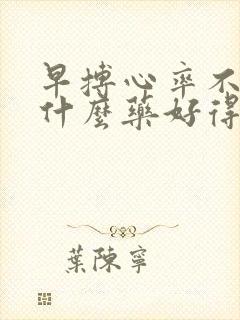 早搏心率不
什麼藥好得
葉陳寧